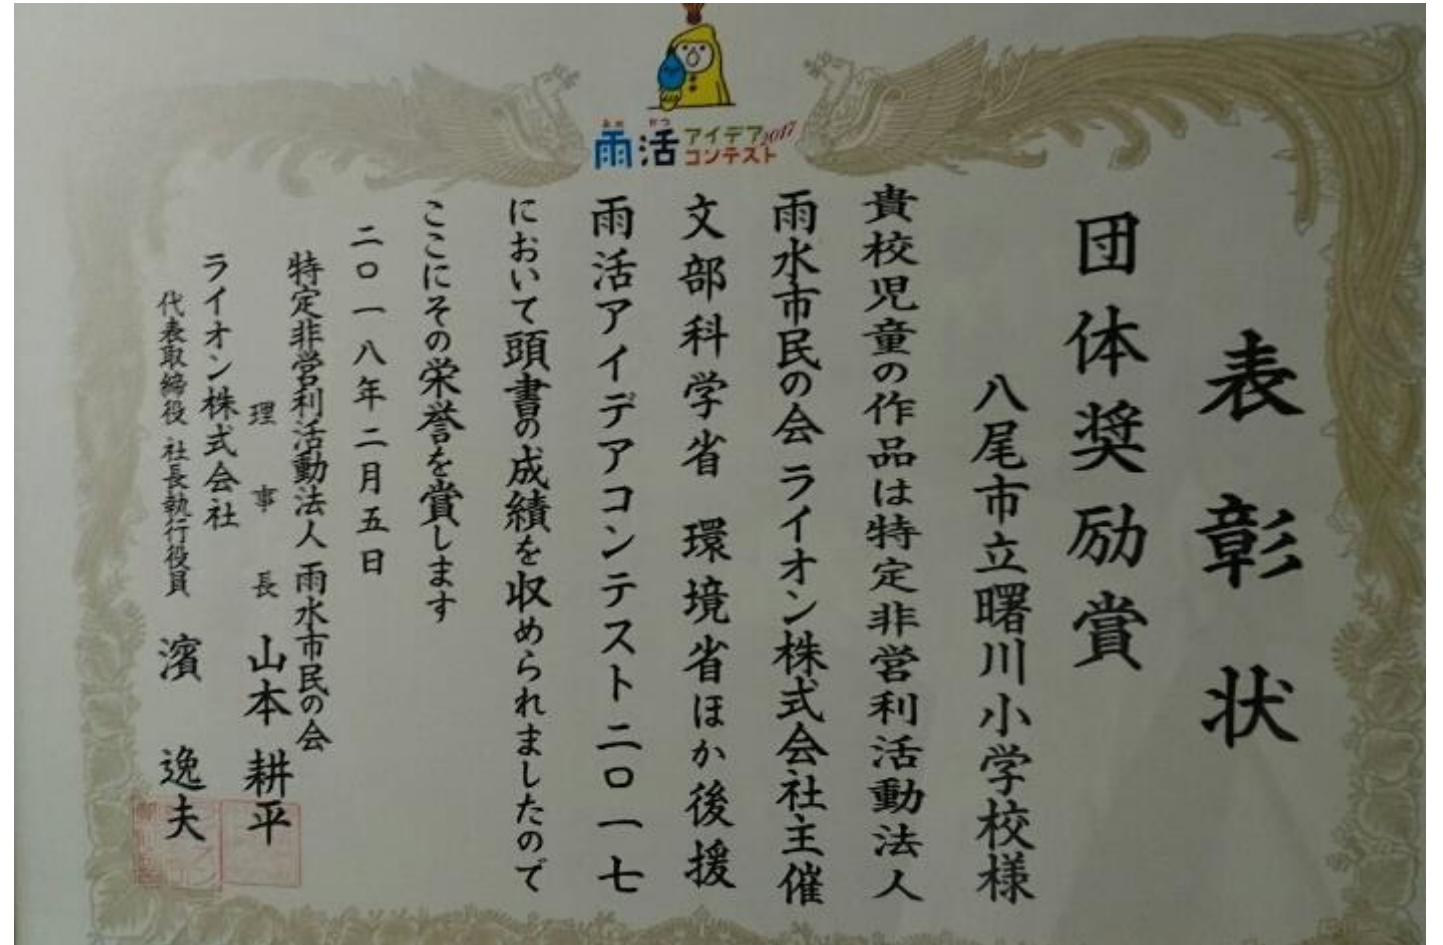 あめ かつ
雨活 アイデア コンテスト 2017
表彰状
団体奨励賞
八尾市立曙川小学校様
貴校児童の作品は特定非営利活動法人
雨水市民の会 ライオン株式会社主催
文部科学省 環境省ほか後援
雨活アイデアコンテスト二〇一七
において頭書の成績を収められましたので
ここにその栄誉を賞します
二〇一八年二月五日
特定非営利活動法人 雨水市民の会
理事長 山本 耕平
ライオン株式会社
代表取締役 社長執行役員 濱 逸夫